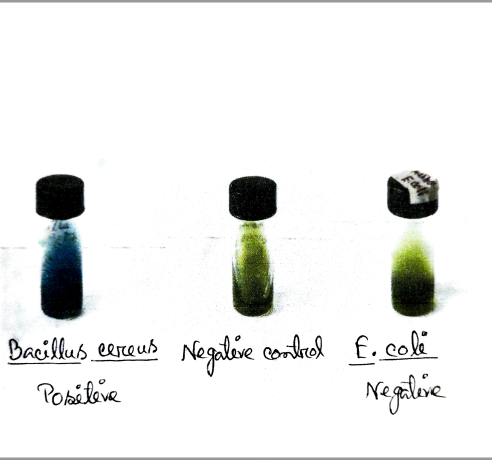 Bacillus cereus
Positive
Negative control
E. coli
Negative